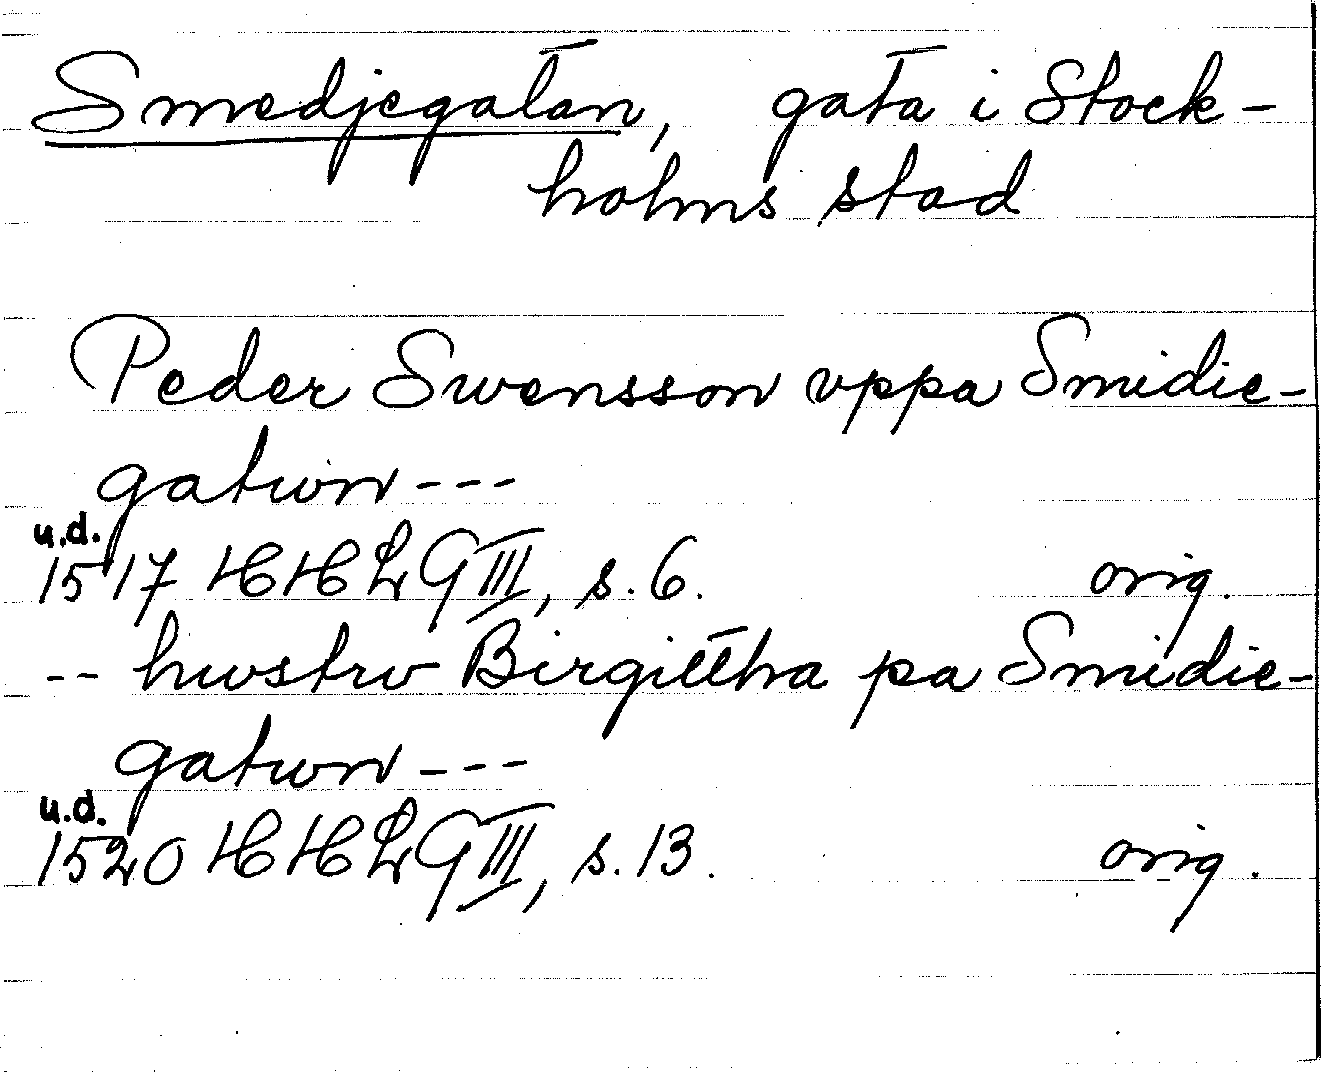 Smedjegatan, gata i Stock-
holms stad
Peder Swensson vppa Smidie-
gatwn ---
u.d.
1517 HHLG III, s. 6. orig.
-- hwstrv Birgittha pa Smidie-
gatwn ---
u.d.
1520 HHLG III, s. 13. orig.